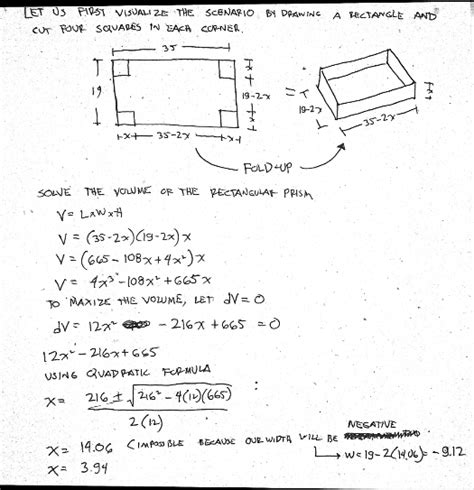 LET US FIRST VISUALIZE THE SCENARIO BY DRAWING A RECTANGLE AND
CUT FOUR SQUARES IN EACH CORNER.
35
19
x
19-2x
x
x 35-2x x
=
x
19-2x
35-2x
FOLD-UP
SOLVE THE VOLUME OF THE RECTANGULAR PRISM
V = LxWxH
V = (35-2x)(19-2x)x
V = (665-108x+4x²)x
V = 4x³-108x²+665x
TO MAXIZE THE VOLUME, LET dV=0
dV = 12x² - 216x + 665 = 0
12x²-216x+665
USING QUADRATIC FORMULA
x = 216 ± √216² - 4(12)(665)
2(12)
x = 14.06 (IMPOSSIBLE BECAUSE OUR WIDTH WILL BE NEGATIVE
W = 19-2(14.06) = -9.12
x = 3.94